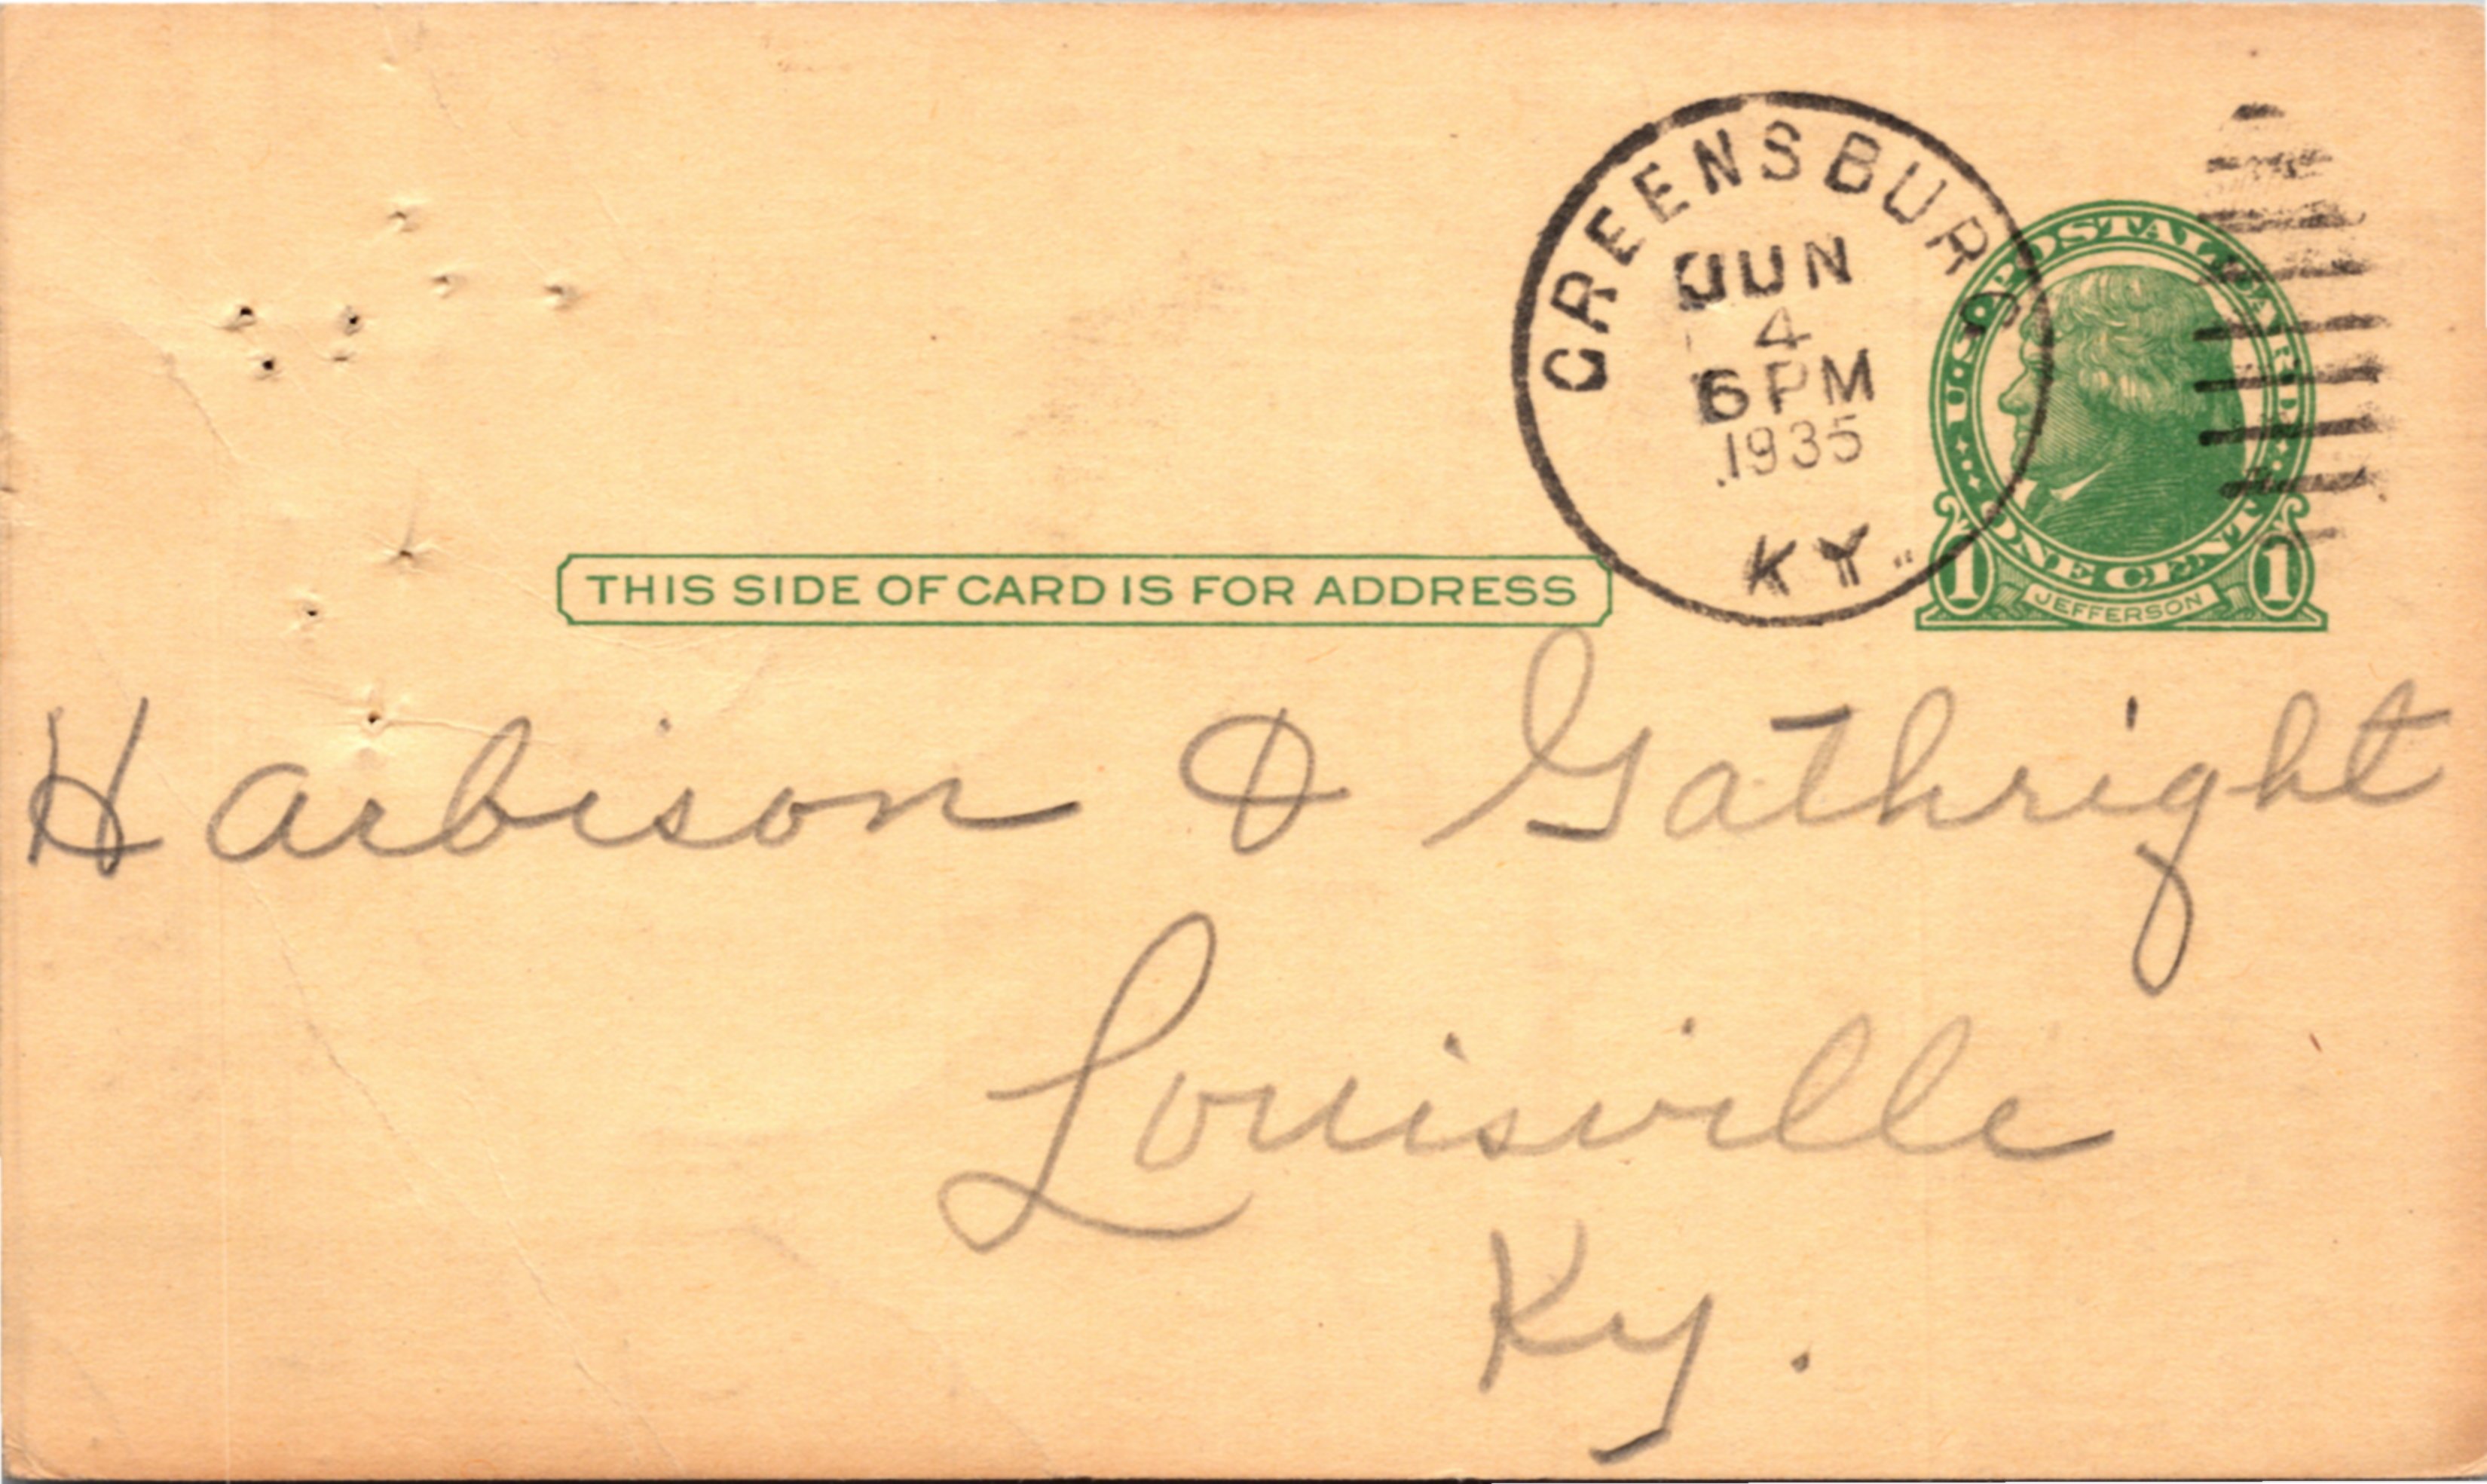 GREENSBURG
JUN
4
6 PM
1935
KY.
U.S. POSTAL CARD
ONE CENT
1 JEFFERSON 1
THIS SIDE OF CARD IS FOR ADDRESS
Harbison & Gathright
Louisville
Ky.